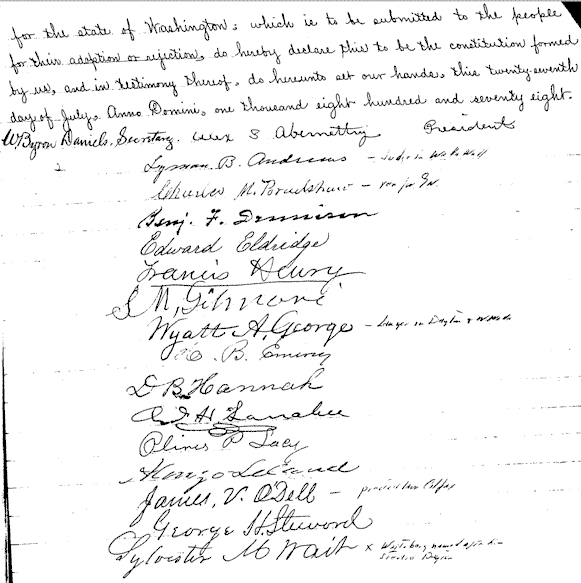 for the state of Washington, which is to be submitted to the people
for their adoption or rejection, do hereby declare this to be the constitution formed
by us, and in testimony thereof, do hereunto set our hands, this twenty-seventh
day of July, Anno Domini, one thousand eight hundred and seventy eight.
W. Byron Daniels, Secretary. Alex S Abernethy President
Lyman B. Andrews -
Charles M. Bradshaw -
Benj. F. Dennison
Edward Eldridge
Francis Henry
S M, Gilmore
Wyatt A. George - Lawyer in Dayton &
B. Emery
D B. Hannah
H. Larrabee
Olivis P Lacy
Alonzo Leland
James, V. O'Dell -
George H. Steward
Sylvester M Wait x Waitsburg named after him